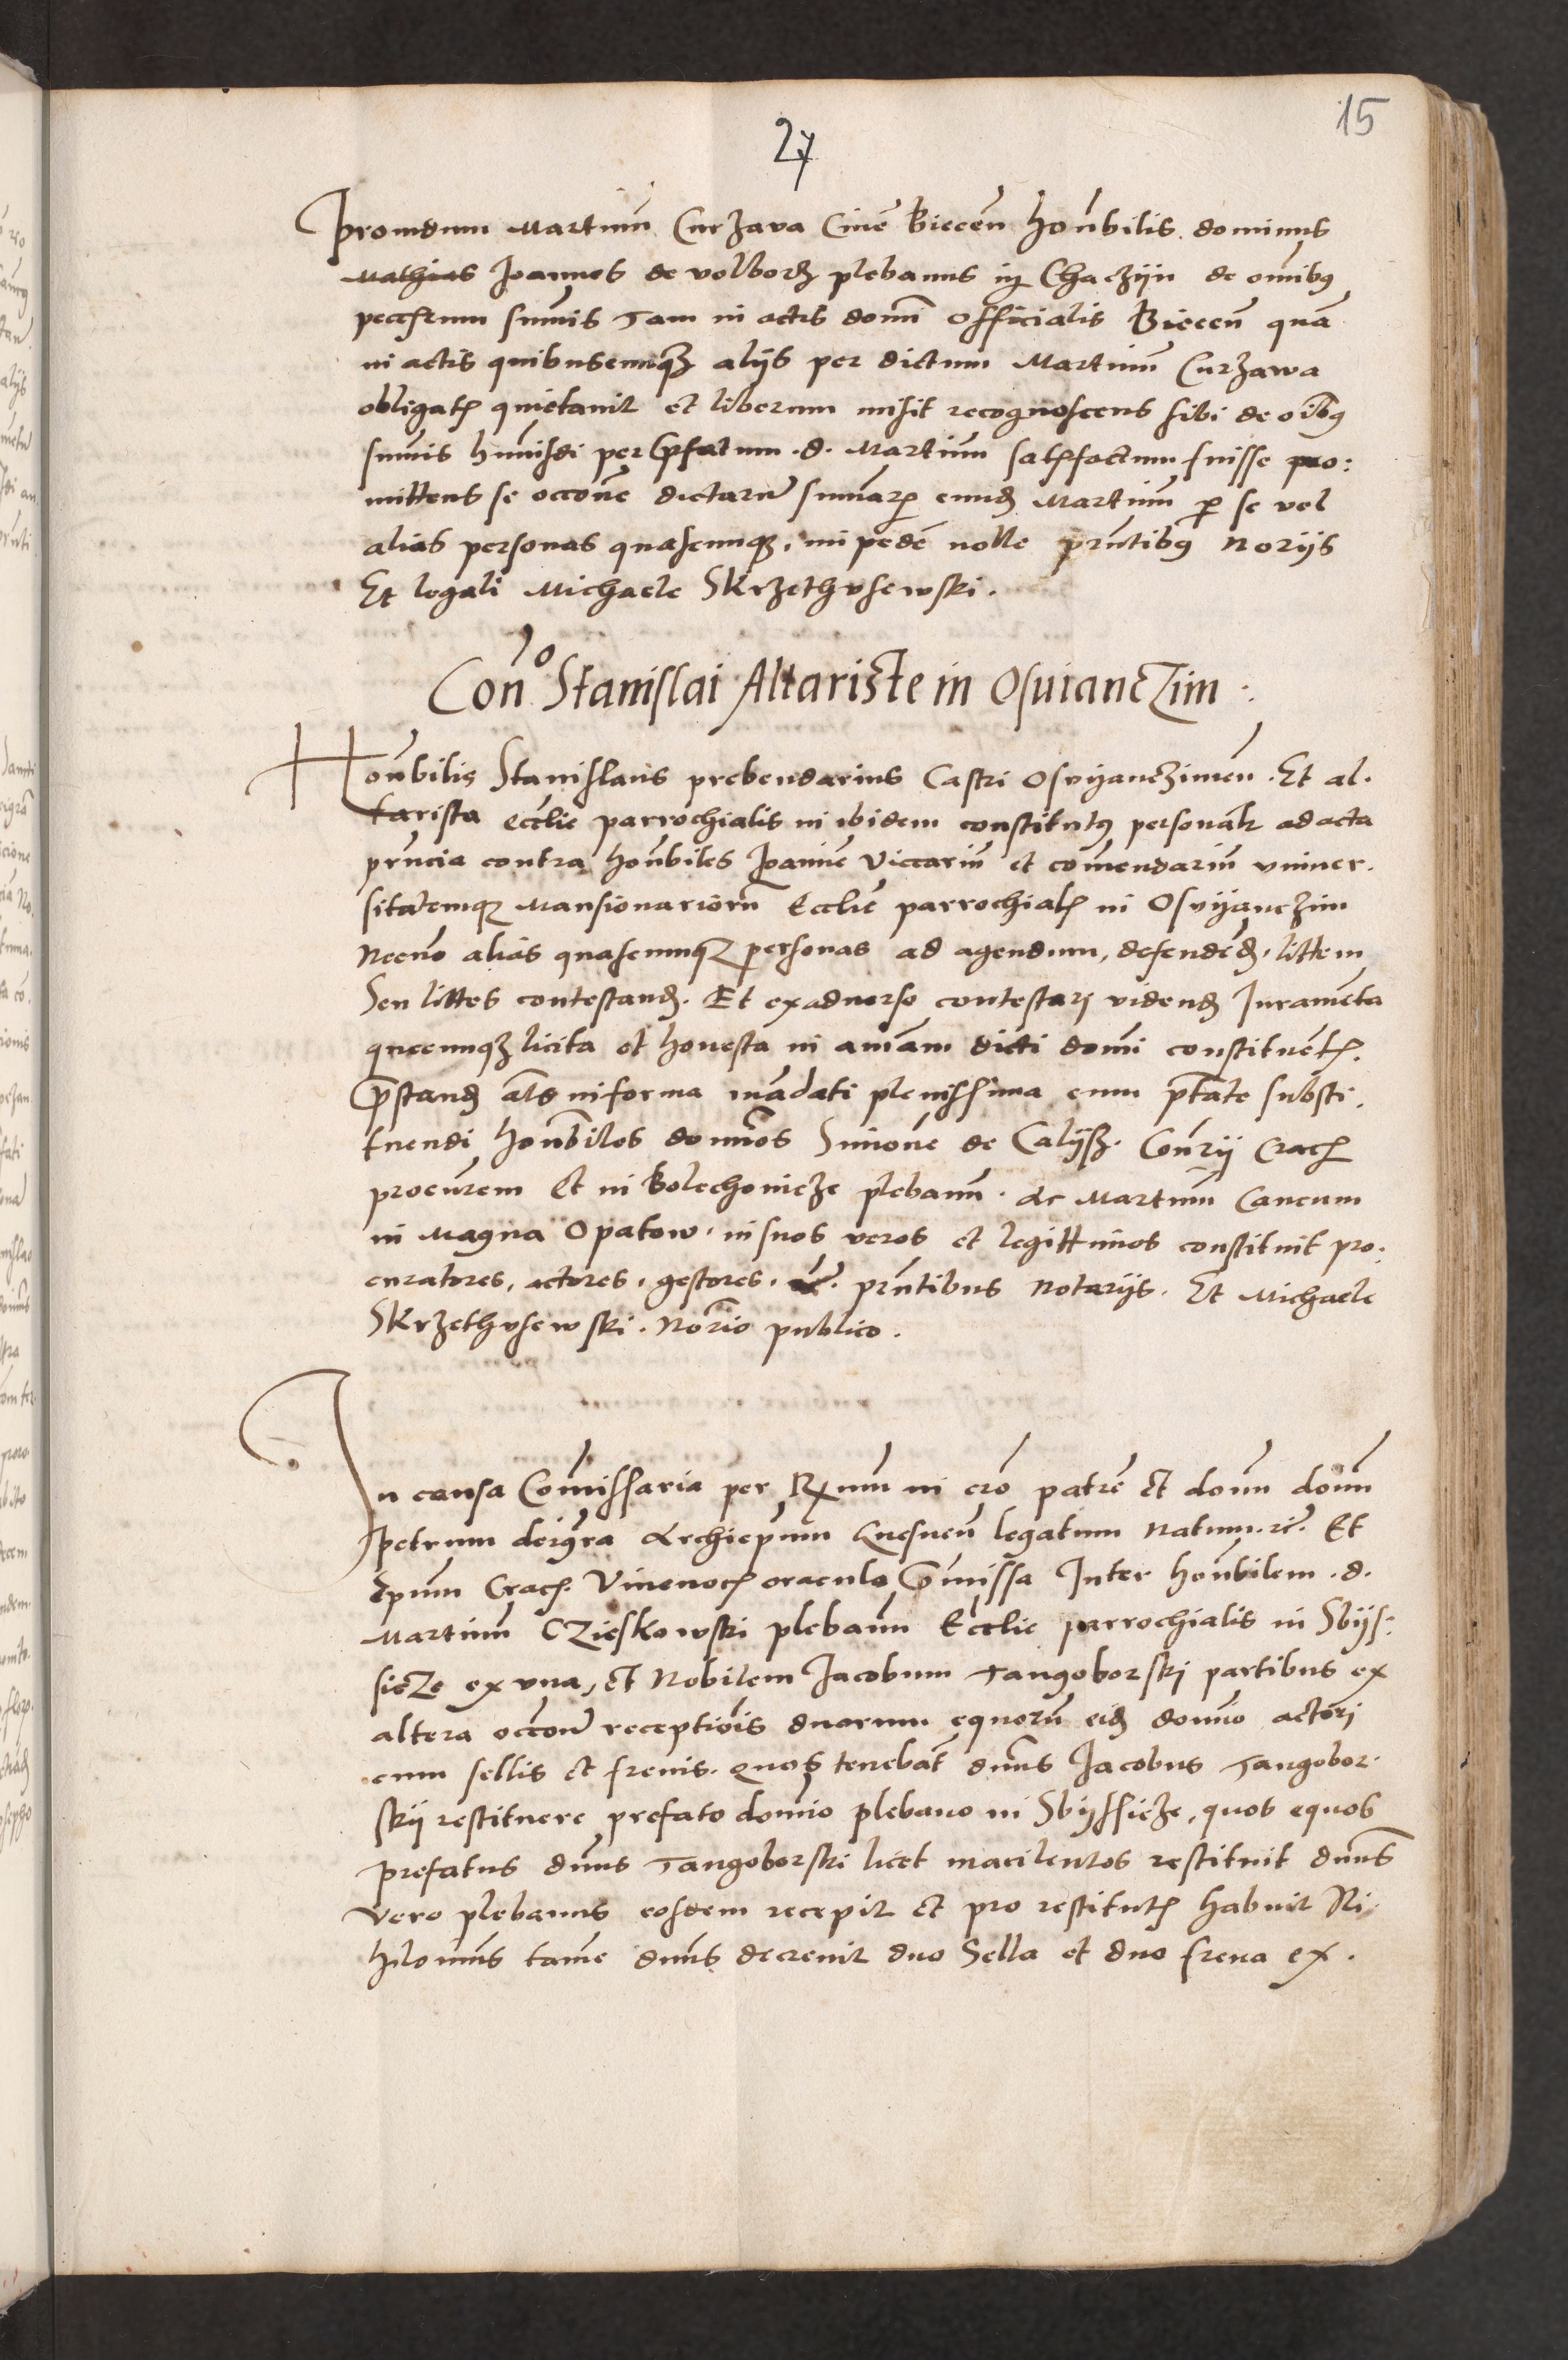 15
27
providum Martinū Curzava Civē Biecen̄ honbilis dominus
Mathias Joannes de volborz plebanus in Chaczijn de omībus
pecc[uni]arum sum̄is Tam in actis domī officialis Biecen̄ quā
in actis quibuscumqz alijs per dictum Martinū Curzawa
obligatꝭ quietavit et liberum misit recognoscens sibi de oībus
sum̄is hmōi[s]di per p̄fatum d. Martinū satisfactum fuisse pro:
mittens se occōne dictarū sum̄arꝝ eund Martinū ꝑ se vel
alias personas quascumqz impedē nolle prn̄tibus Norijs
Et legali Michaele Skrzethusewski.
Con.to Stanislai Altariste in Osviancʒim.
Honb̄ilis Stanislaus prebendarius Castri Osvijanczimen̄. Et al.
tarista eccl̄ie parrochialis in ibidem constitutus personalr ad acta
prn̄cia contra honb̄iles Joannē viccariū et com̄endariū univer.
sitatemqz Mansionariorū Eccl̄ie parrochialꝭ in Osvijanczim
Necno alias quascumqz personas ad agendum, defendēd. littem
Seu littes contestand. Et exadverso contestari vidend Juramēta
quecumqz licita et honesta in aniam dicti domī constituentꝭ.
p̄stand als in forma mādati plenissima cum ptāte substi.
tuendi honb̄iles dominos Simonē de Calijsz. Con̄rij Cracꝭ
procūrem Et in Bolechowicze plebanū. Ac Martinū Cancum
in Magna Opatow. in suos veros et legittimos constituit pro.
curatores, actores, gestores. etc. prn̄tibus Notarijs. Et Michaele
Skrzethusewski. Norio publico.
In causa Com̄issaria per Rx̄mum in cro patrē et domn domn
petrum dei gr̄a Archiep̄um Gnesnen̄ legatum Natum. ec̄. Et
Ep̄um Cracꝭ. Vivevocꝭ oraculo Com̄issa Inter honb̄ilem. d.
Martinū Czieskowski plebanū Eccl̄ie parrochialis in Sbijs:
sicze ex una, et Nobilem Jacobum Tangoborski partibus ex
altera occōne receptiōis duorum equorū eid domīo actori
cum sellis et frenis. quos tenebāt dn̄us Jacobus Tangobor.
skij restituere prefato domīo plebano in Sbijssicze, quos equos
prefatus dn̄us Tangoborski licet macilentos restituit dn̄us
vero plebanus eosdem recepit et pro restitutꝭ habuit Ni
hilominus tamē dn̄us decrevit duo Sella et duo frena ex.